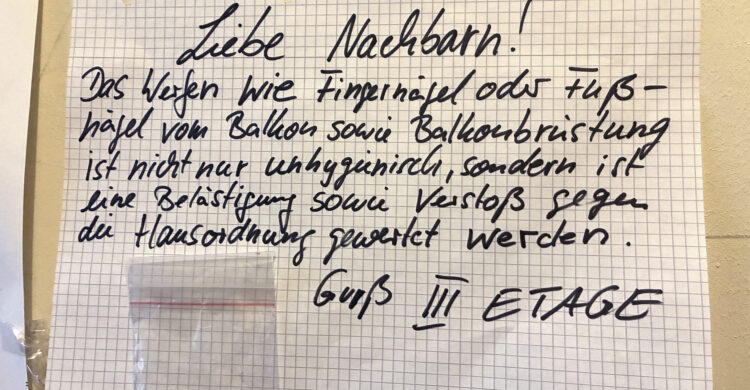 Liebe Nachbarn!
Das Werfen wie Fingernägel oder Fuß-
nägel vom Balkon sowie Balkonbrüstung
ist nicht nur unhygienisch, sondern ist
eine Belästigung sowie Verstoß gegen
die Hausordnung gewertet werden.
Gruß III ETAGE